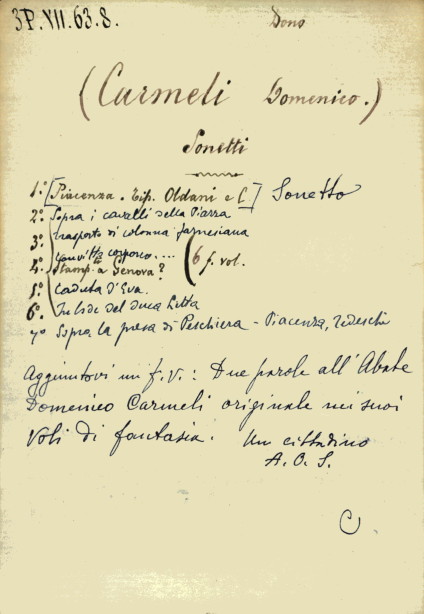 3P.VII.63.8. Dono
(Carmeli Domenico.)
Sonetti
1.º [Piacenza. Tip. Oldani e C.] Sonetto
2.º Sopra i cavalli della Piazza
3.º trasporto di colonna farnesiana
convitto corporeo....
4.º Stamp.ª Genova? (6 f. vol.
5.º Caduta d'Eva
6.º In lode del duca Litta
7º Sopra la presa di Peschiera - Piacenza, Tedeschi
Aggiuntovi un f. v.: Due parole all'Abate
Domenico Carmeli originale nei suoi
Voli di fantasia. Un cittadino
A. O. S.
C